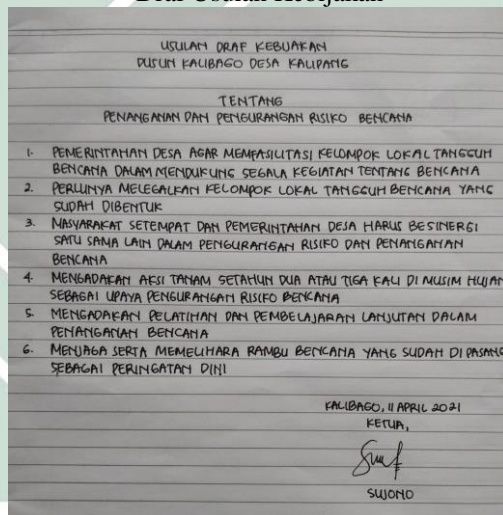 Draf Usulan Kebijakan
USULAN DRAF KEBIJAKAN
DUSUN KALIBAGO DESA KALIPANG
TENTANG
PENANGANAN DAN PENGURANGAN RISIKO BENCANA
1. PEMERINTAHAN DESA AGAR MEMFASILITASI KELOMPOK LOKAL TANGGUH
BENCANA DALAM MENDUKUNG SEGALA KEGIATAN TENTANG BENCANA
2. PERLUNYA MELEGALKAN KELOMPOK LOKAL TANGGUH BENCANA YANG
SUDAH DIBENTUK
3. MASYARAKAT SETEMPAT DAN PEMERINTAHAN DESA HARUS BESINERGI
SATU SAMA LAIN DALAM PENGURANGAN RISIKO DAN PENANGANAN
BENCANA
4. MENGADAKAN AKSI TANAM SETAHUN DUA ATAU TIGA KALI DI MUSIM HUJAN
SEBAGAI UPAYA PENGURANGAN RISIKO BENCANA
5. MENGADAKAN PELATIHAN DAN PEMBELAJARAN LANJUTAN DALAM
PENANGANAN BENCANA
6. MENJAGA SERTA MEMELIHARA RAMBU BENCANA YANG SUDAH DI PASANG
SEBAGAI PERINGATAN DINI
KALIBAGO, 11 APRIL 2021
KETUA,
SUJONO